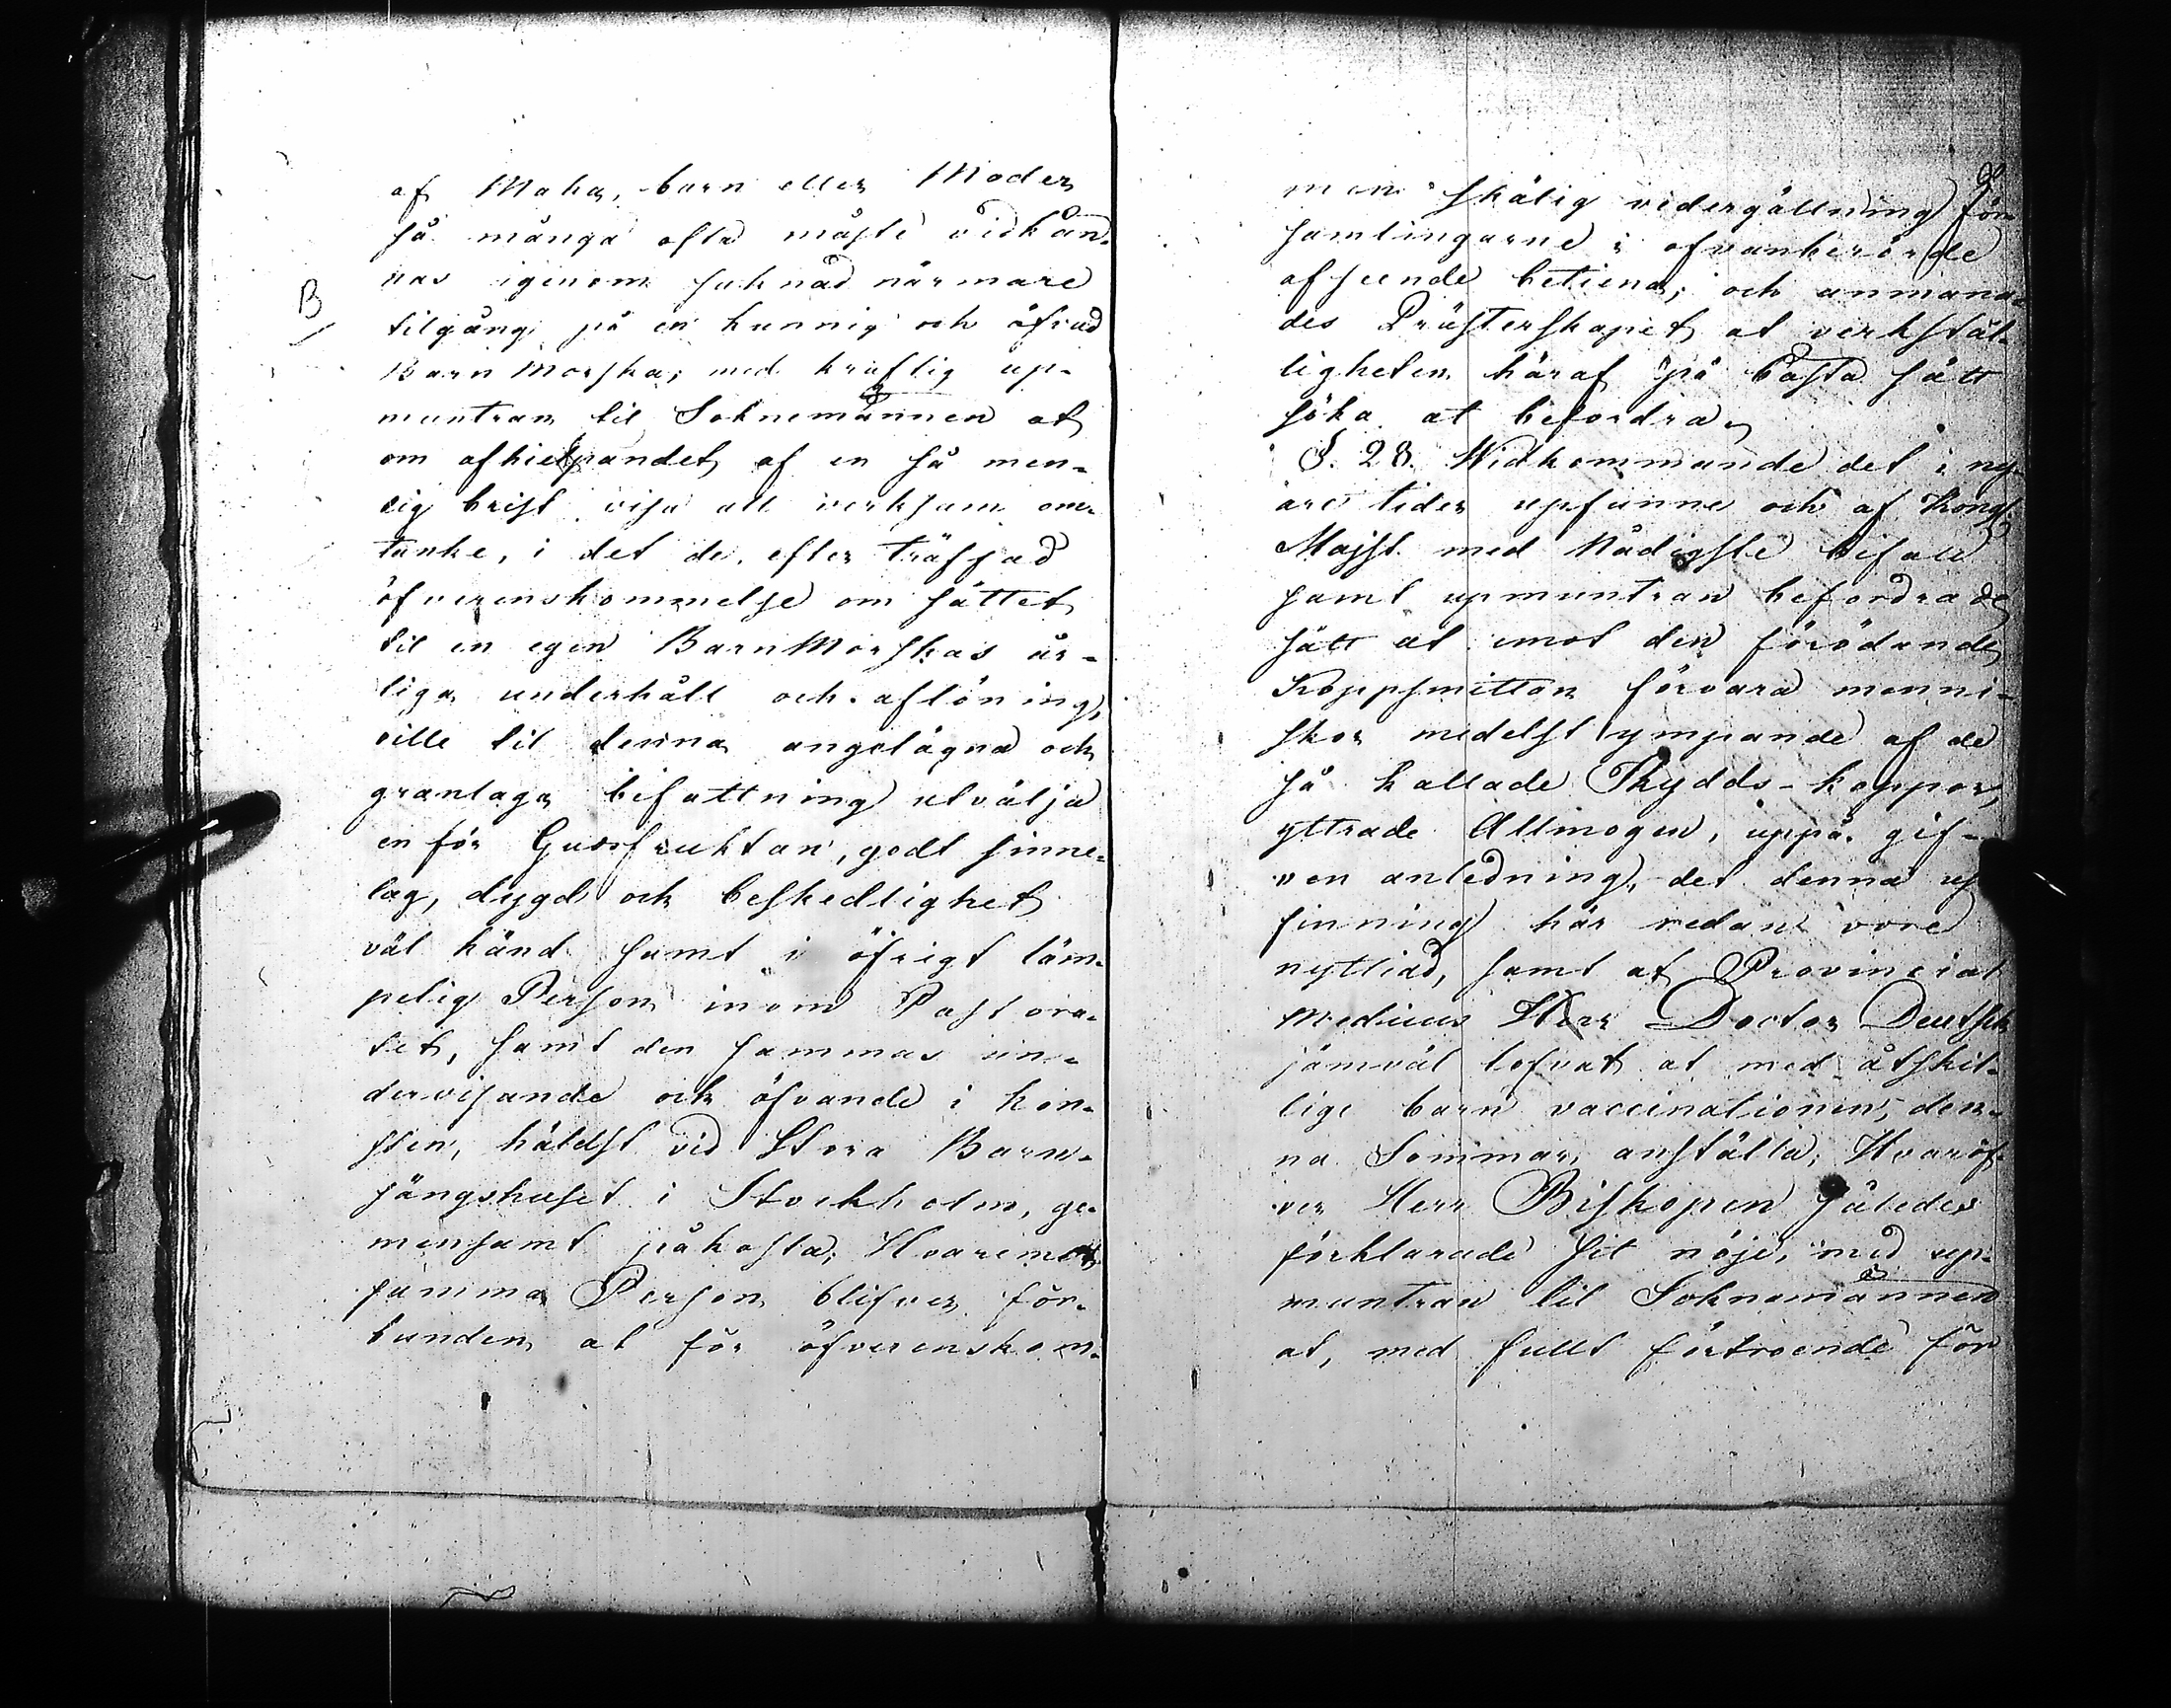 af Maka, barn eller Moder
så många ofta måste vidkän-
nas igenom saknad närmare
B
tilgång på en kunnig och öfvad
BarnMorska; med kraftig up-
muntran til Soknemännen at
om afhielpandet af en så men-
lig brist visa all verksam om-
tanke, i det de, efter träffad
öfverenskommelse om sättet
til en egen BarnMorskas år-
liga underhåll och aflöning,
ville til denna angelägna och
granlaga befattning utvälja
en för Gudsfruktan, godt sinne-
lag, dygd och beskedlighet
väl känd samt i öfrigt läm-
pelig Person inom Pastora-
tet, samt den sammas un-
dervisande och öfvande i kon-
sten, häldst vid Stora Barn-
sängshuset i Stockholm, ge-
mensamt påkosta; Hvaremot
samma Person blifver för-
bunden at för öfverenskom-
men skälig vedergällning för-
samlingarne i ofvanberörde
afseende betiena; och anmana-
des Prästerskapet at verkstäl-
ligheten häraf på bästa sätt
söka at befordra.
§. 28. Widkommande det i ny-
are tider upfunne och af Kongl
Majst. med Nådigste bifall
samt upmuntran befordrade
sätt at emot den förödande
Koppsmittan förvara menni-
skor medelst ympande af de
så kallade Skydds-koppor,
yttrade Allmogen, uppå gif-
ven anledning, det denna up
finning här redan vore
nyttiad, samt at Provincial
Medicus Herr Doctor Deutsch
jämväl lofvat at med åtskil-
lige barn vaccinationen, den-
na Sommar, anställa; Hvaröf-
ver Herr Biskopen således
förklarade sit nöje, med up-
muntran til Soknemännen
at, med fullt förtroende för